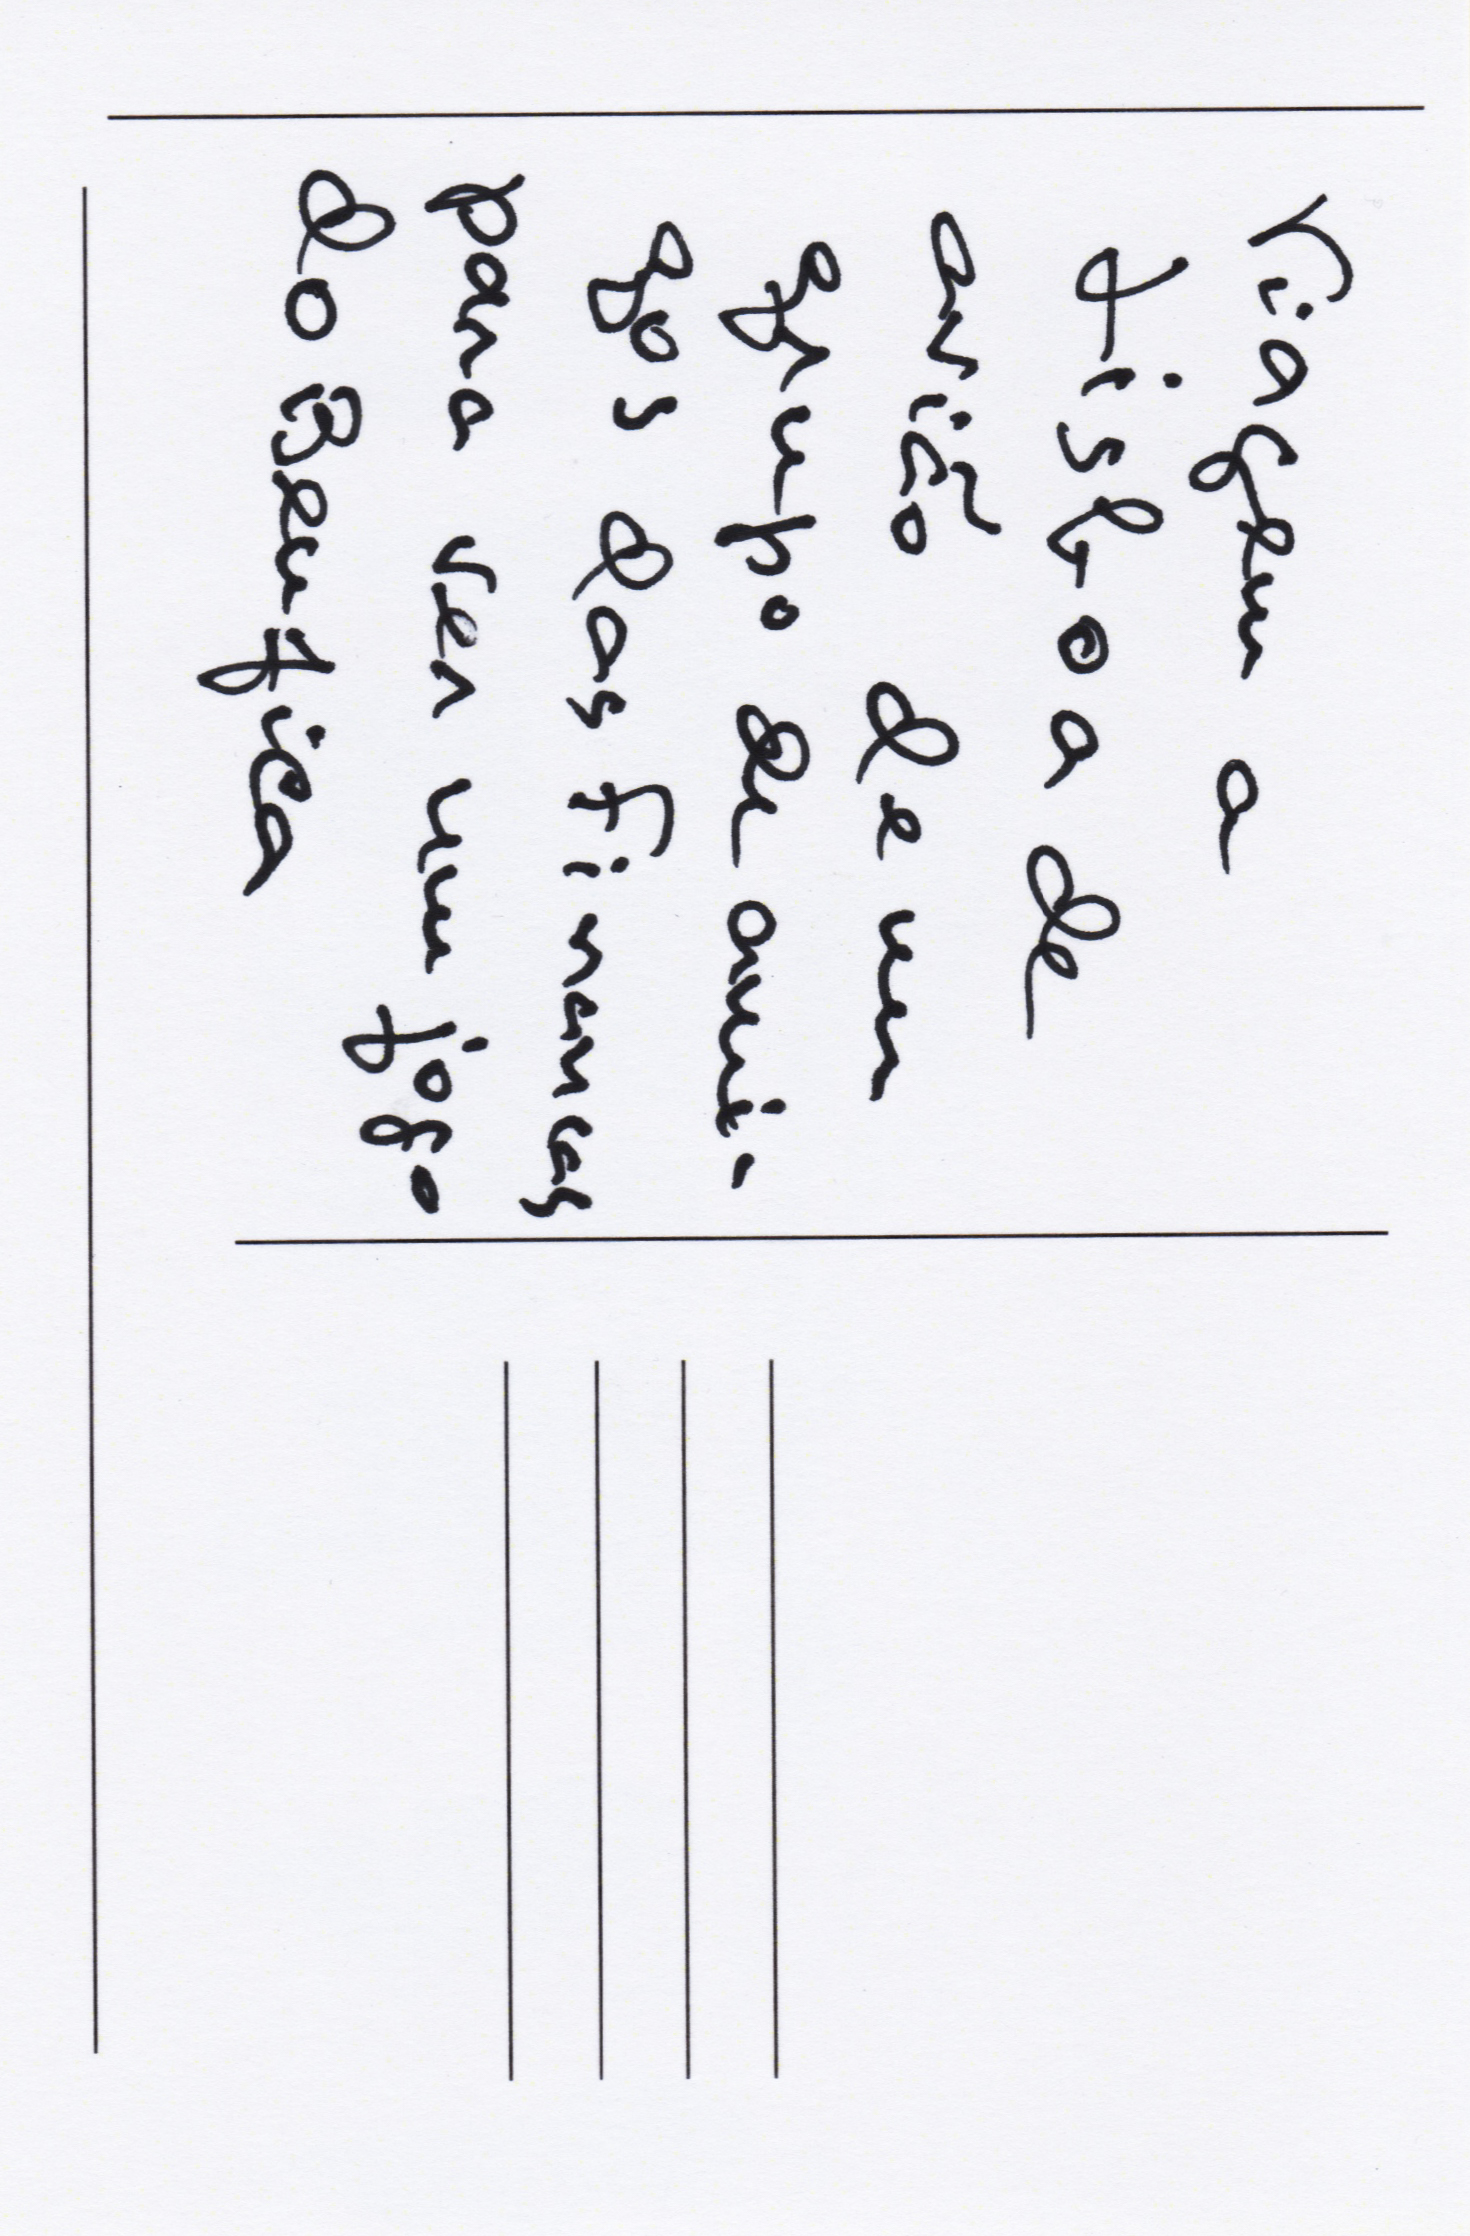 Viagem a
Lisboa de
avião de um
grupo de ami-
gos das finanças
para ver um jogo
do Benfica